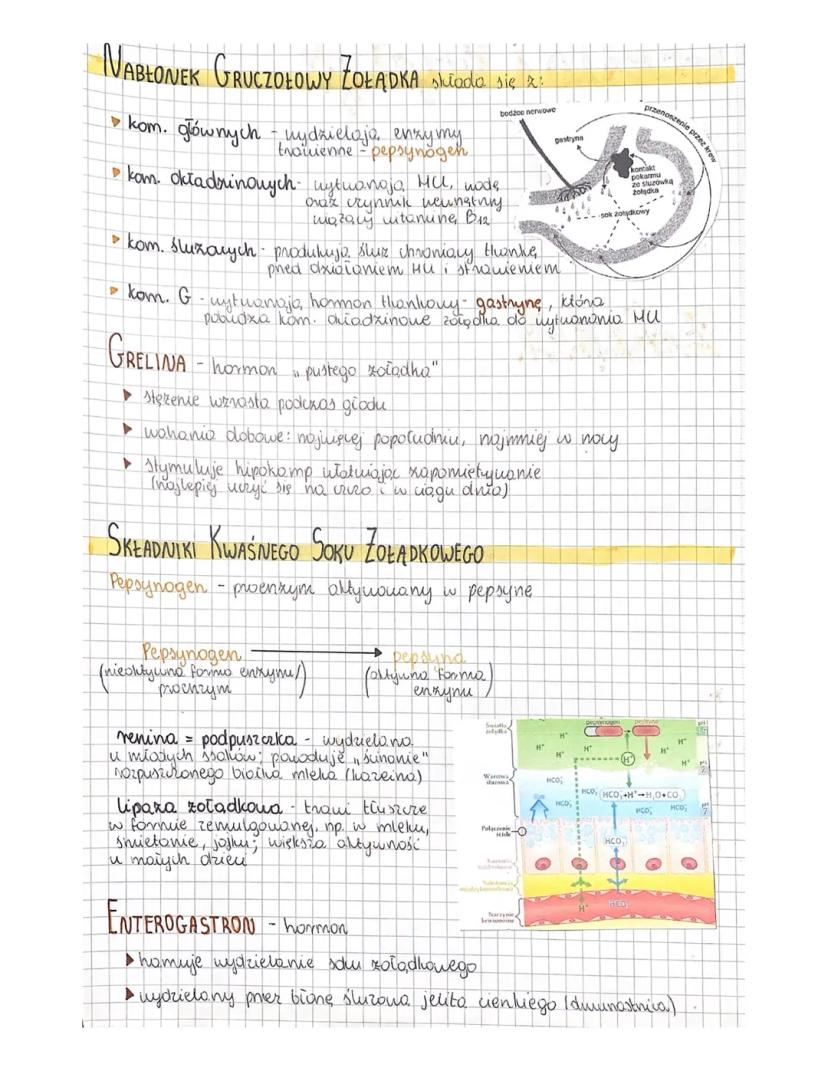 NABŁONEK GRUCZOŁOWY ŻOŁĄDKA składa się z:
kom. głównych - wydzielają enzymy
trawienne - pepsynogen
kom. okładzinowych - wytwarzają HCl, wodę
oraz czynnik wewnętrzny
wiążący witaminę B12
kom. śluzowych - produkują śluz chroniący tkankę
przed działaniem HCl i strawieniem
kom. G - wytwarzają hormon tkankowy - gastrynę, która
pobudza kom. okładzinowe żołądka do wytwarzania HCl
bodźce nerwowe
przenoszenie przez krew
gastryna
kontakt
pokarmu
ze śluzówką
żołądka
sok żołądkowy
GRELINA - hormon „pustego żołądka"
stężenie wzrasta podczas głodu
wahania dobowe: najwięcej popołudniu, najmniej w nocy
stymuluje hipokamp ułatwiając zapamiętywanie
(najlepiej uczyć się na czczo i w ciągu dnia)
SKŁADNIKI KWAŚNEGO SOKU ŻOŁĄDKOWEGO
Pepsynogen - proenzym aktywowany w pepsynę
Pepsynogen → pepsyna
(nieaktywna forma enzymu/
proenzym)
(aktywna forma
enzymu)
renina = podpuszczka - wydzielana
u młodych ssaków; powoduje „ścinanie"
rozpuszczonego białka mleka (kazeina)
lipaza żołądkowa - trawi tłuszcze
w formie zemulgowanej, np. w mleku,
śmietanie, jajku; większa aktywność
u małych dzieci
Światło
żołądka
pepsynogen
pepsyna
H+
H+
H+
H+
H+
H+
H+
H+
Warstwa
śluzowa
HCO3-
HCO3-
HCO3- + H+ → H2O + CO2
HCO3-
HCO3-
HCO3-
pH
7
Połączenie
ścisłe
HCO3-
Naczynie
krwionośne
H+
HCO3-
ENTEROGASTRON - hormon
hamuje wydzielanie soku żołądkowego
wydzielany przez błonę śluzową jelita cienkiego (dwunastnica)